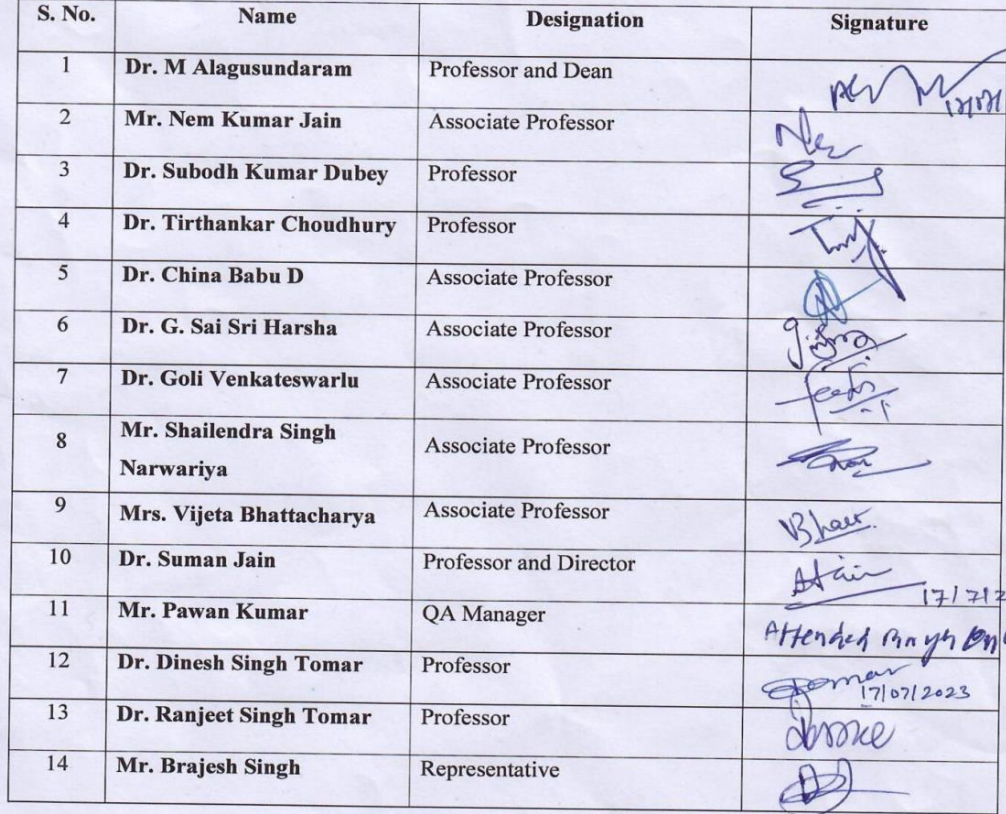 S. No. Name Designation Signature
1 Dr. M Alagusundaram Professor and Dean
2 Mr. Nem Kumar Jain Associate Professor
3 Dr. Subodh Kumar Dubey Professor
4 Dr. Tirthankar Choudhury Professor
5 Dr. China Babu D Associate Professor
6 Dr. G. Sai Sri Harsha Associate Professor
7 Dr. Goli Venkateswarlu Associate Professor
8 Mr. Shailendra Singh Associate Professor
Narwariya
9 Mrs. Vijeta Bhattacharya Associate Professor
10 Dr. Suman Jain Professor and Director
17/7/2
11 Mr. Pawan Kumar QA Manager Attended
12 Dr. Dinesh Singh Tomar Professor
17/07/2023
13 Dr. Ranjeet Singh Tomar Professor
14 Mr. Brajesh Singh Representative